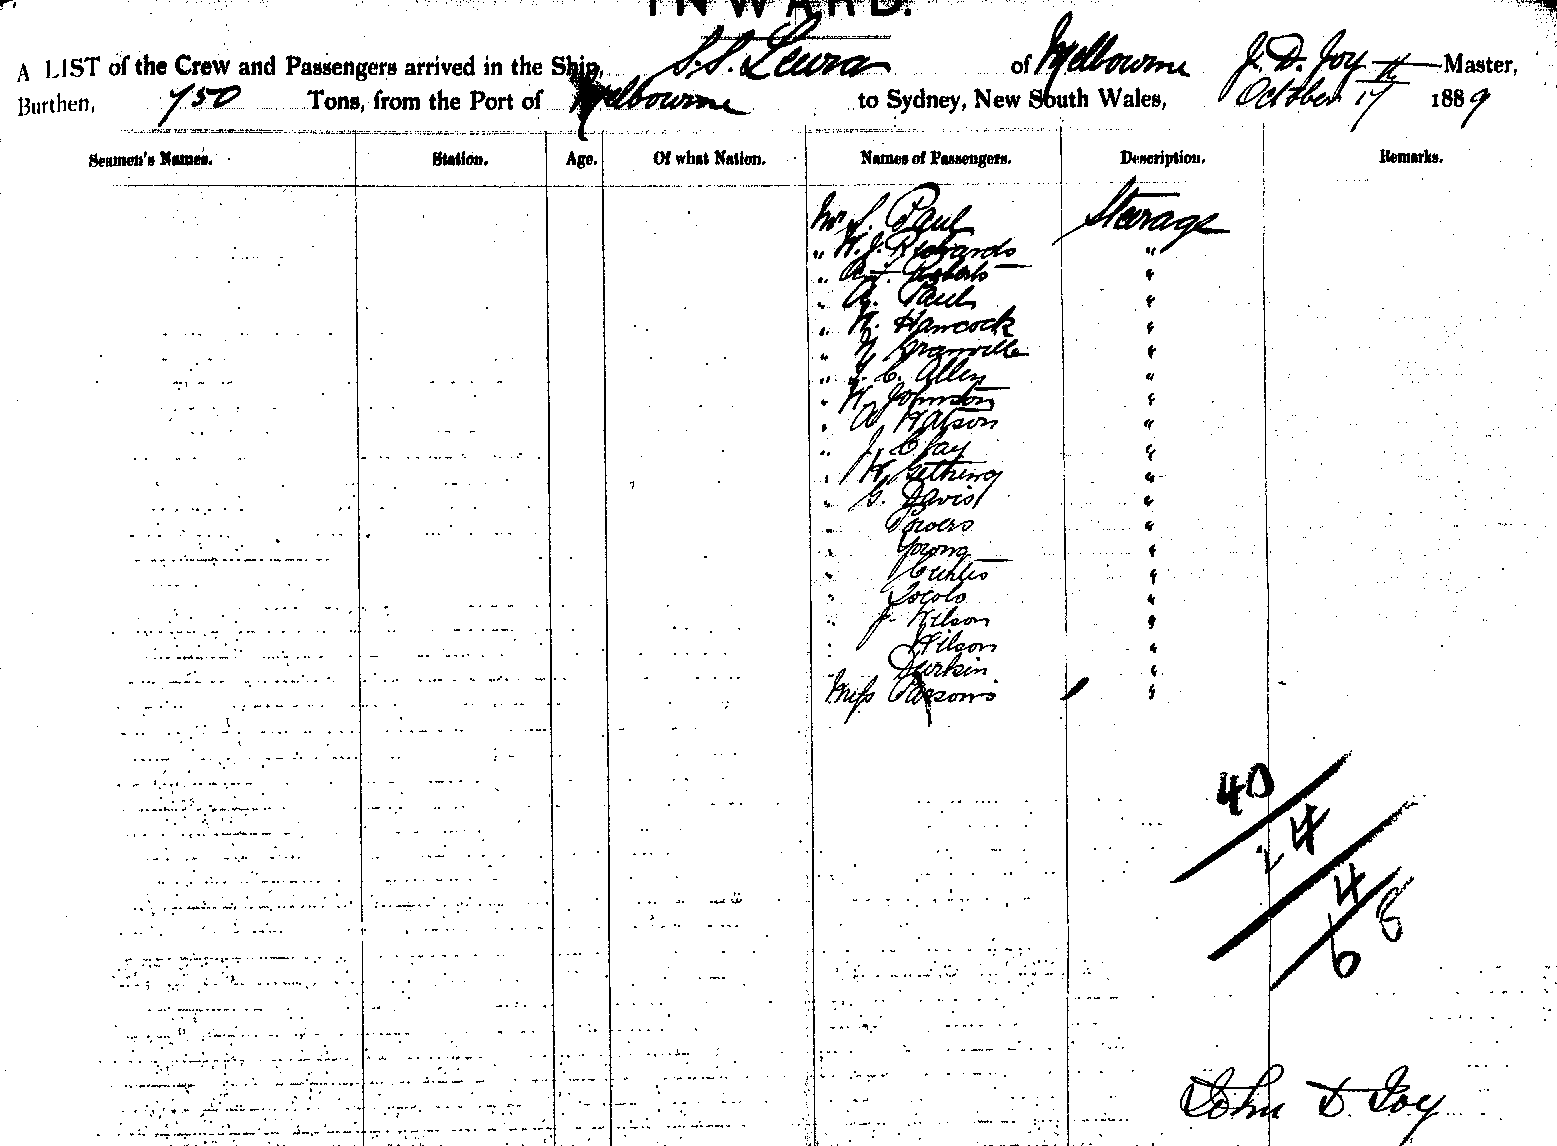 INWARD.
A LIST of the Crew and Passengers arrived in the Ship, S.S. Leura of Melbourne J. D. Joy Master,
Burthen, 750 Tons, from the Port of Melbourne to Sydney, New South Wales, October 17th 1889
Seamen's Names. Station. Age. Of what Nation. Names of Passengers. Description. Remarks.
Mr S. Paul Steerage
" W. J. Richards "
" Roberts "
" A. Paul "
" W. Hancock "
" Granville "
" J. C. Allen "
" W. Johnson "
" A Watson "
" J. Clay "
" W. Gething "
" G. Davis "
" Powers "
" Young "
" Curtis "
" "
" J. Wilson "
" Wilson "
" Durkin "
Miss Parsons "
40
24
4
68
John D. Joy